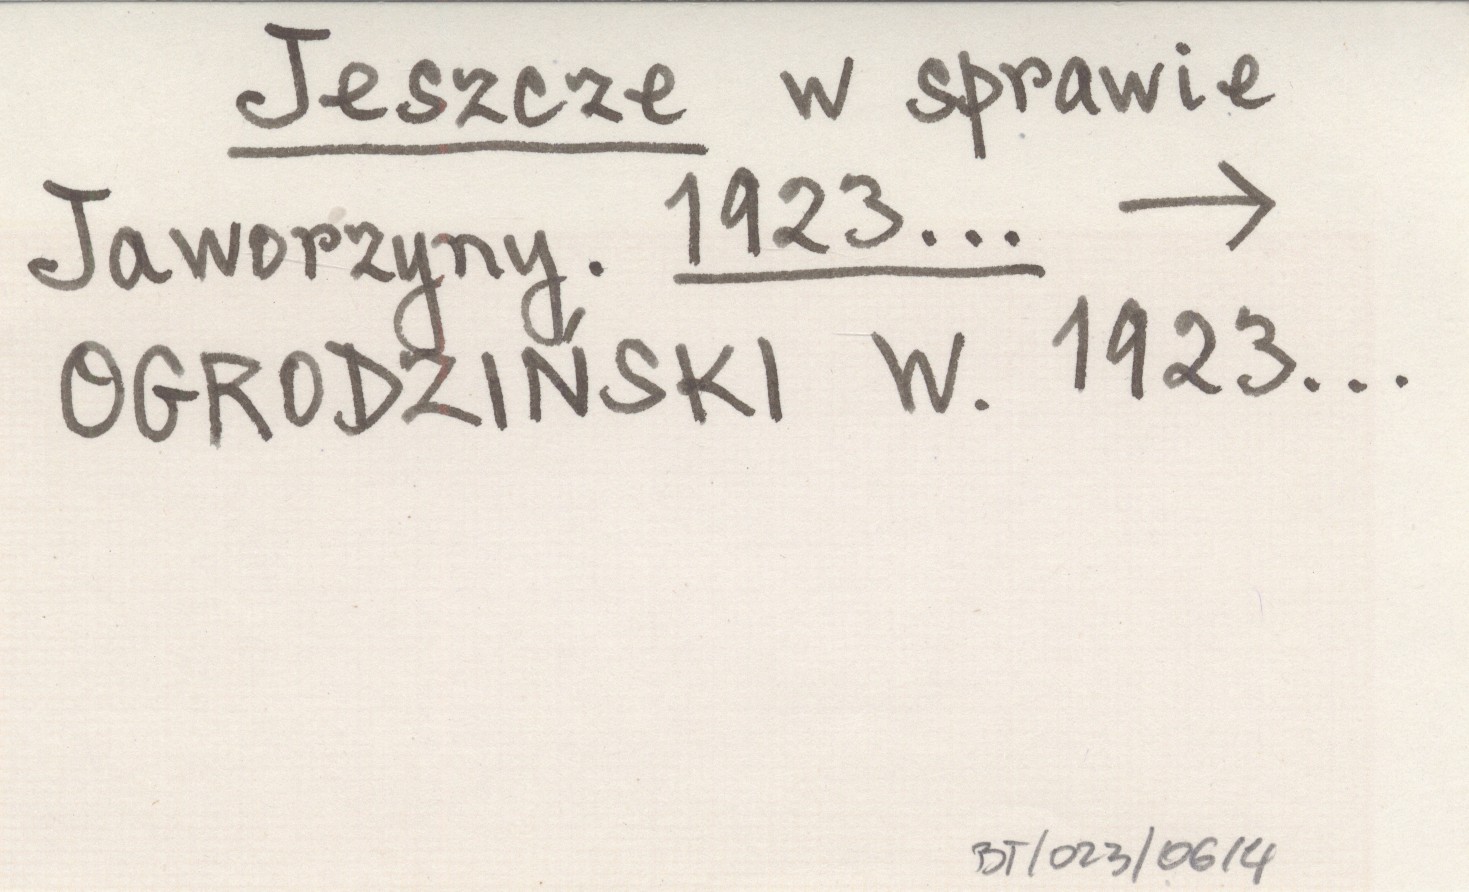 Jeszcze w sprawie
Jaworzyny. 1923... →
OGRODZIŃSKI W. 1923...
BT/023/0614